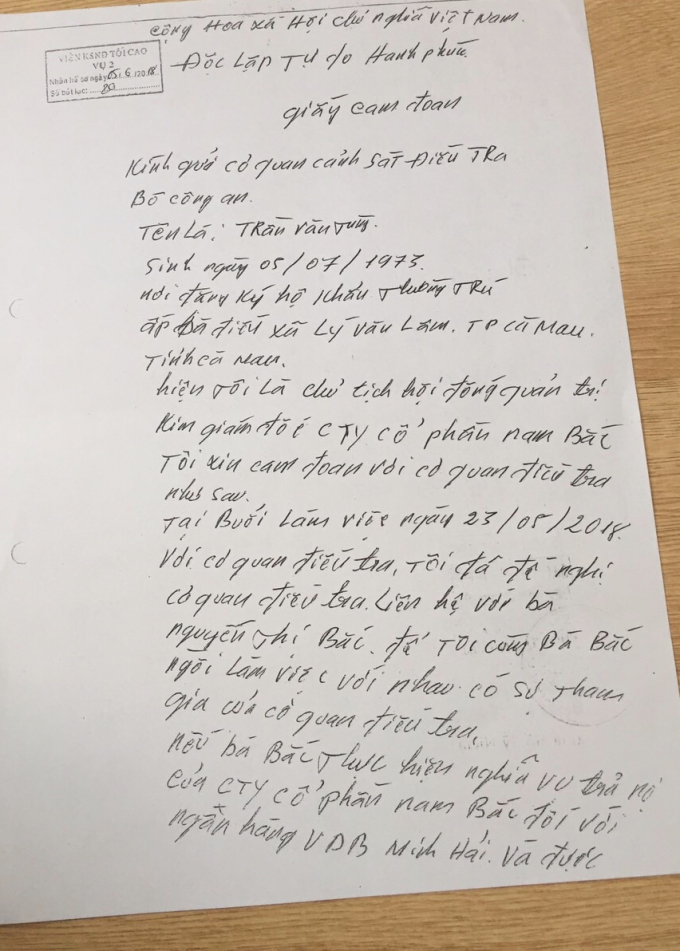 Cộng Hoa xã Hội chủ nghĩa việt Nam.
VIỆN KSND TỐI CAO
VỤ 2
Nhận hồ sơ ngày 05/6/2018
Số bút lục:
Độc Lập Tự do Hanh phúc
giấy cam đoan
Kính gửi cơ quan cảnh sát Điều TRa
Bộ công an.
Tên Là: TRần văn Tùng.
Sinh ngày 05/07/1973.
nơi đăng ký hộ khẩu Thường TRú
ấp Bà điều xã Lý văn Lâm. TP cà Mau.
Tỉnh cà Mau.
hiện Tôi Là chủ tịch hội đồng quản trị
Kim giám đốc CTY cổ phần nam Bắc
Tôi xin cam đoan với cơ quan điều tra
như sau.
Tại Buổi Làm việc ngày 23/05/2018.
Với cơ quan điều tra, Tôi đã đề nghị
cơ quan điều tra. Liên hệ với bà
nguyễn Thị Bắc. để Tôi cùng Bà Bắc
ngồi Làm việc với nhau có Sự Tham
gia của cơ quan điều tra,
nếu bà Bắc Thực hiện nghĩa vụ trả nợ
của CTY cổ phần nam Bắc đối với
ngân hàng VDB Minh Hải. Và được